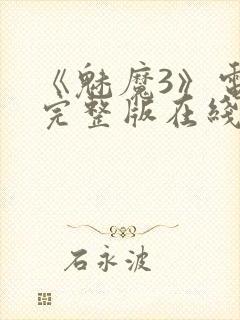 《魅魔3》电
完整版在线
石永波